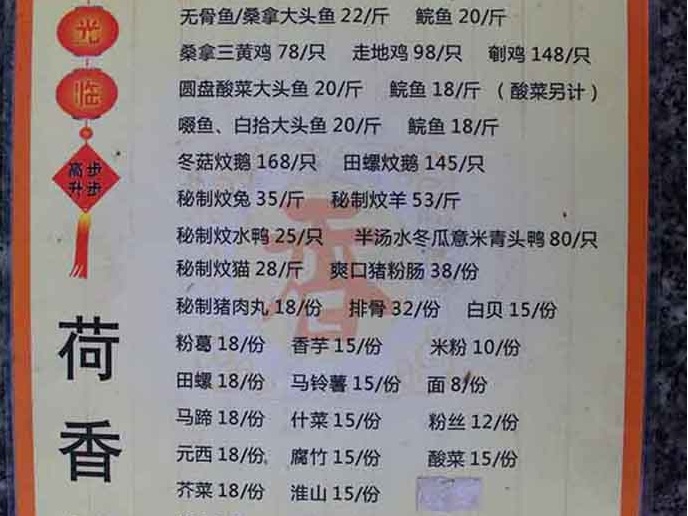 光
临
高步
升步
荷
香
无骨鱼/桑拿大头鱼 22/斤 鲩鱼 20/斤
桑拿三黄鸡 78/只 走地鸡 98/只 剦鸡 148/只
圆盘酸菜大头鱼 20/斤 鲩鱼 18/斤 （酸菜另计）
啜鱼、白拾大头鱼 20/斤 鲩鱼 18/斤
冬菇炆鹅 168/只 田螺炆鹅 145/只
秘制炆兔 35/斤 秘制炆羊 53/斤
秘制炆水鸭 25/只 半汤水冬瓜意米青头鸭 80/只
秘制炆猫 28/斤 爽口猪粉肠 38/份
秘制猪肉丸 18/份 排骨 32/份 白贝 15/份
粉葛 18/份 香芋 15/份 米粉 10/份
田螺 18/份 马铃薯 15/份 面 8/份
马蹄 18/份 什菜 15/份 粉丝 12/份
元西 18/份 腐竹 15/份 酸菜 15/份
芥菜 18/份 淮山 15/份